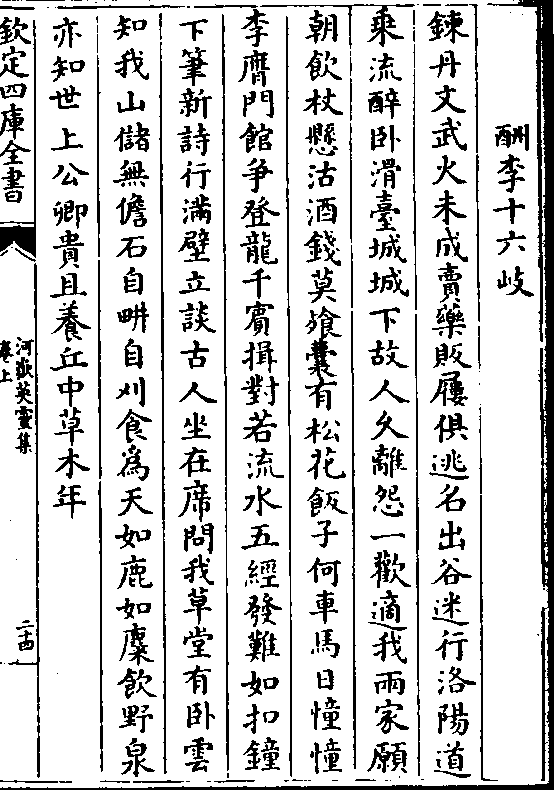 酬李十六岐
鍊丹文武火未成賣藥販屨俱逃名出谷迷行洛陽道
乘流醉卧滑臺城城下故人久離怨一歡適我兩家願
朝飲杖懸沽酒錢莫飱囊有松花飯子何車馬日憧憧
李膺門館爭登龍千賓揖對若流水五經發難如扣鐘
下筆新詩行滿壁立談古人坐在席問我草堂有卧雲
知我山儲無儋石自畊自刈食為天如鹿如麋飲野泉
亦知世上公卿貴且養丘中草木年
欽定四庫全書
河嶽英靈集
卷上
二十四